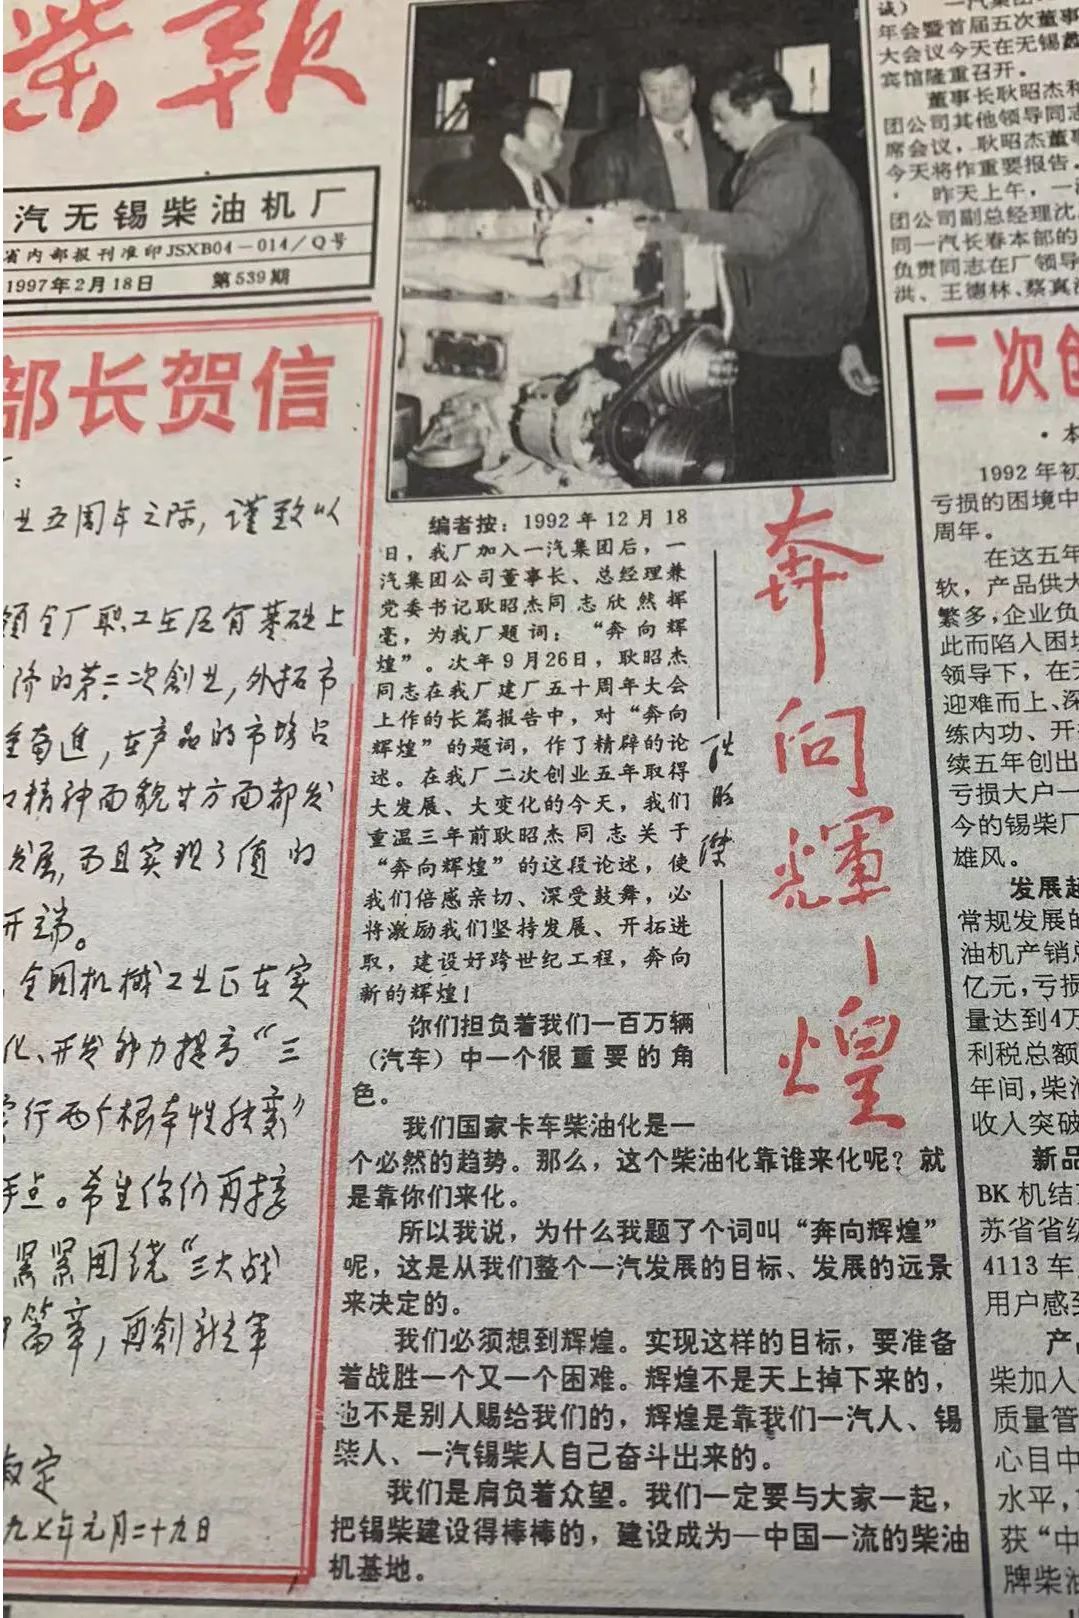 柴報
汽无锡柴油机厂
省内部报刊准印JSXB04－014/Q号
1997年2月18日 第539期
部长贺信
：
业五周年之际，谨致以
领全厂职工在原有基础上
济的第二次創业，外拓市
奋進，在产品的市場占
精神面貌廿方面都发
发展，而且实现了值的
开端。
全国机械工业正在实
化、开发能力提高“三
实行两个根本性转变”
点。希望你们再接
紧紧围绕“三大战
篇章，再創新
九七年元月二十九日
编者按：1992年12月18
日，我厂加入一汽集团后，一
汽集团公司董事长、总经理兼
党委书记耿昭杰同志欣然挥
毫，为我厂题词：“奔向辉
煌”。次年9月26日，耿昭杰
同志在我厂建厂五十周年大会
上作的长篇报告中，对“奔向
辉煌”的题词，作了精辟的论
述。在我厂二次创业五年取得
大发展、大变化的今天，我们
重温三年前耿昭杰同志关于
“奔向辉煌”的这段论述，使
我们倍感亲切、深受鼓舞，必
将激励我们坚持发展、开拓进
取，建设好跨世纪工程，奔向
新的辉煌！
奔向輝煌
耿昭傑
你们担负着我们一百万辆
（汽车）中一个很重要的角
色。
我们国家卡车柴油化是一
个必然的趋势。那么，这个柴油化靠谁来化呢？就
是靠你们来化。
所以我说，为什么我题了个词叫“奔向辉煌”
呢，这是从我们整个一汽发展的目标、发展的远景
来决定的。
我们必须想到辉煌。实现这样的目标，要准备
着战胜一个又一个困难。辉煌不是天上掉下来的，
也不是别人赐给我们的，辉煌是靠我们一汽人、锡
柴人、一汽锡柴人自己奋斗出来的。
我们是肩负着众望。我们一定要与大家一起，
把锡柴建设得棒棒的，建设成为一中国一流的柴油
机基地。
诚） 一汽集团
年会暨首届五次董事
大会议今天在无锡
宾馆隆重召开。
董事长耿昭杰和
团公司其他领导同志
席会议，耿昭杰董事
今天将作重要报告。
昨天上午，一
团公司副总经理沈
同一汽长春本部的
负责同志在厂领导
洪、王德林、蔡真
二次创
·本
1992年初
亏损的困境中
周年。
在这五年
软，产品供大
繁多，企业负
此而陷入困境
领导下，在
迎难而上、深
练内功、开
续五年创出
亏损大户一
今的锡柴厂
雄风。
发展起
常规发展的
油机产销总
亿元，亏损
量达到4万
利税总额
年间，柴油
收入突破
新品
BK机结
苏省省级
4113车
用户感到
产
柴加入
质量管
心目中
水平，
获“中
牌柴油